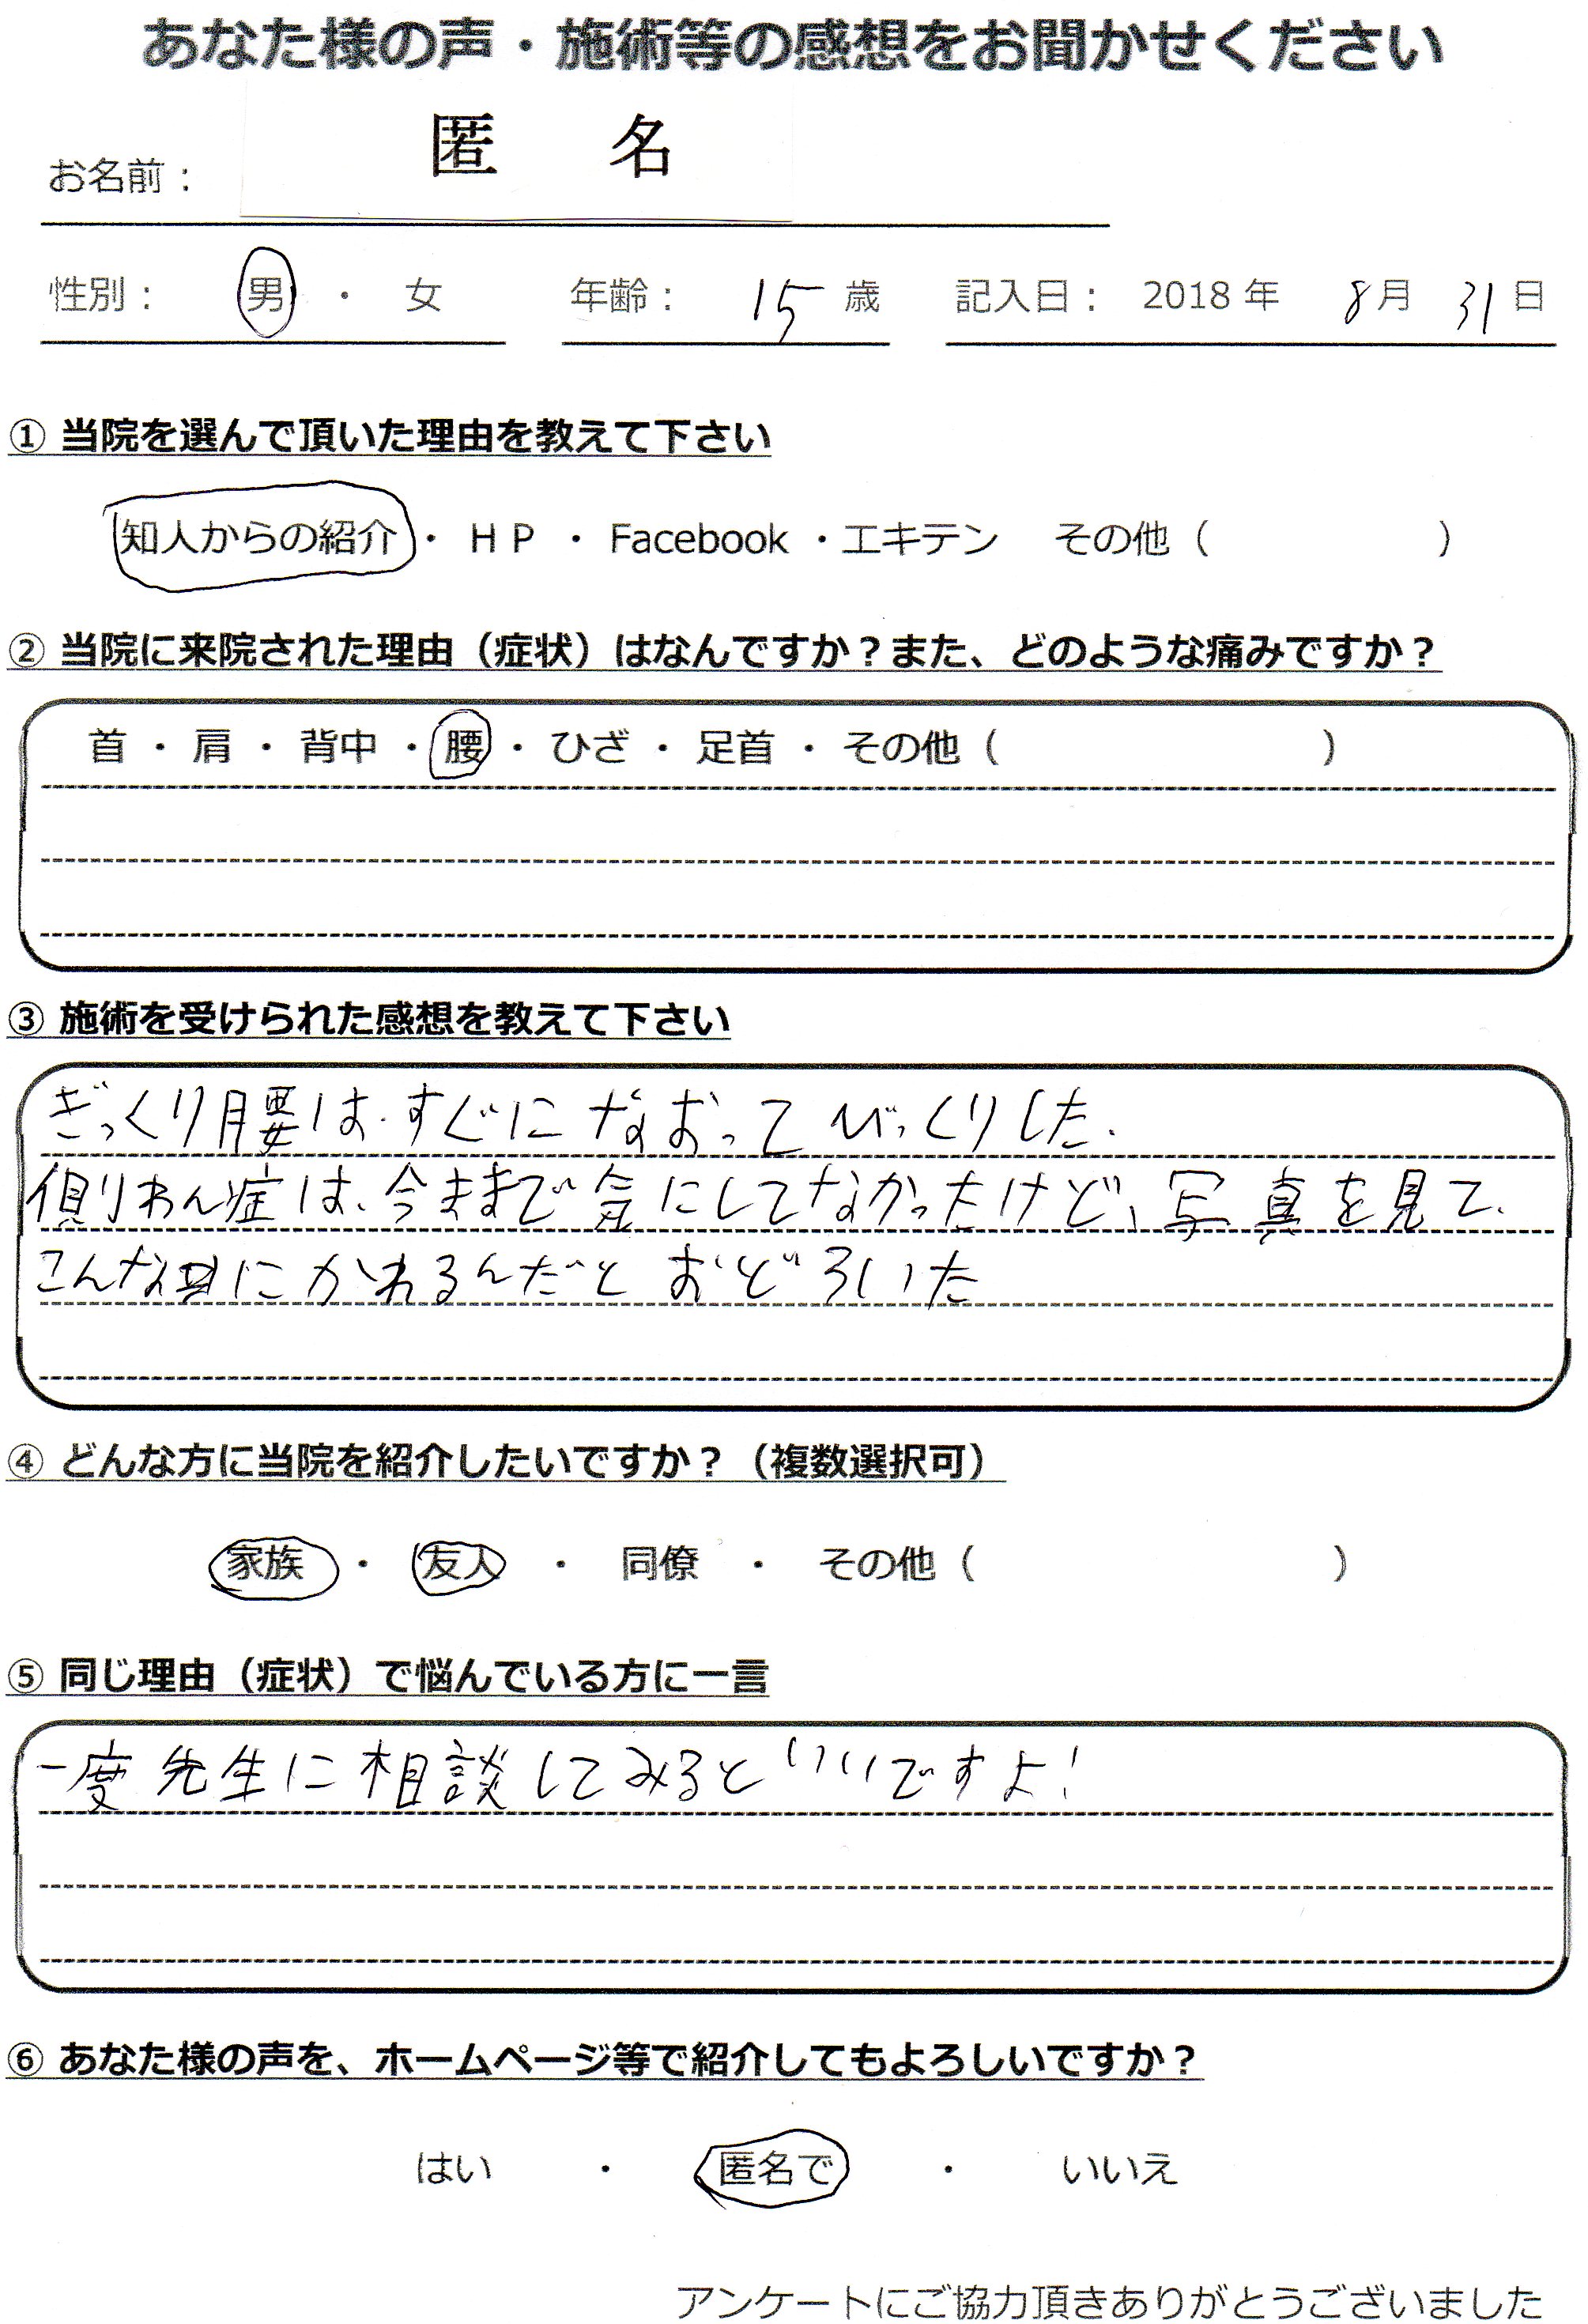 あなた様の声・施術等の感想をお聞かせください
お名前： 匿 名
性別： 男 ・ 女 年齢： 15 歳 記入日： 2018 年 8 月 31 日
① 当院を選んで頂いた理由を教えて下さい
知人からの紹介 ・ ＨＰ ・ Facebook ・エキテン その他（ ）
② 当院に来院された理由（症状）はなんですか？また、どのような痛みですか？
首 ・ 肩 ・ 背中 ・ 腰 ・ ひざ ・ 足首 ・ その他（ ）
③ 施術を受けられた感想を教えて下さい
ぎっくり腰は、すぐになおってびっくりした。
側わん症は、今まで気にしてなかったけど、写真を見て、
こんな にかわるんだとおどろいた
④ どんな方に当院を紹介したいですか？（複数選択可）
家族 ・ 友人 ・ 同僚 ・ その他（ ）
⑤ 同じ理由（症状）で悩んでいる方に一言
一度先生に相談してみるといいですよ！
⑥ あなた様の声を、ホームページ等で紹介してもよろしいですか？
はい ・ 匿名で ・ いいえ
アンケートにご協力頂きありがとうございました